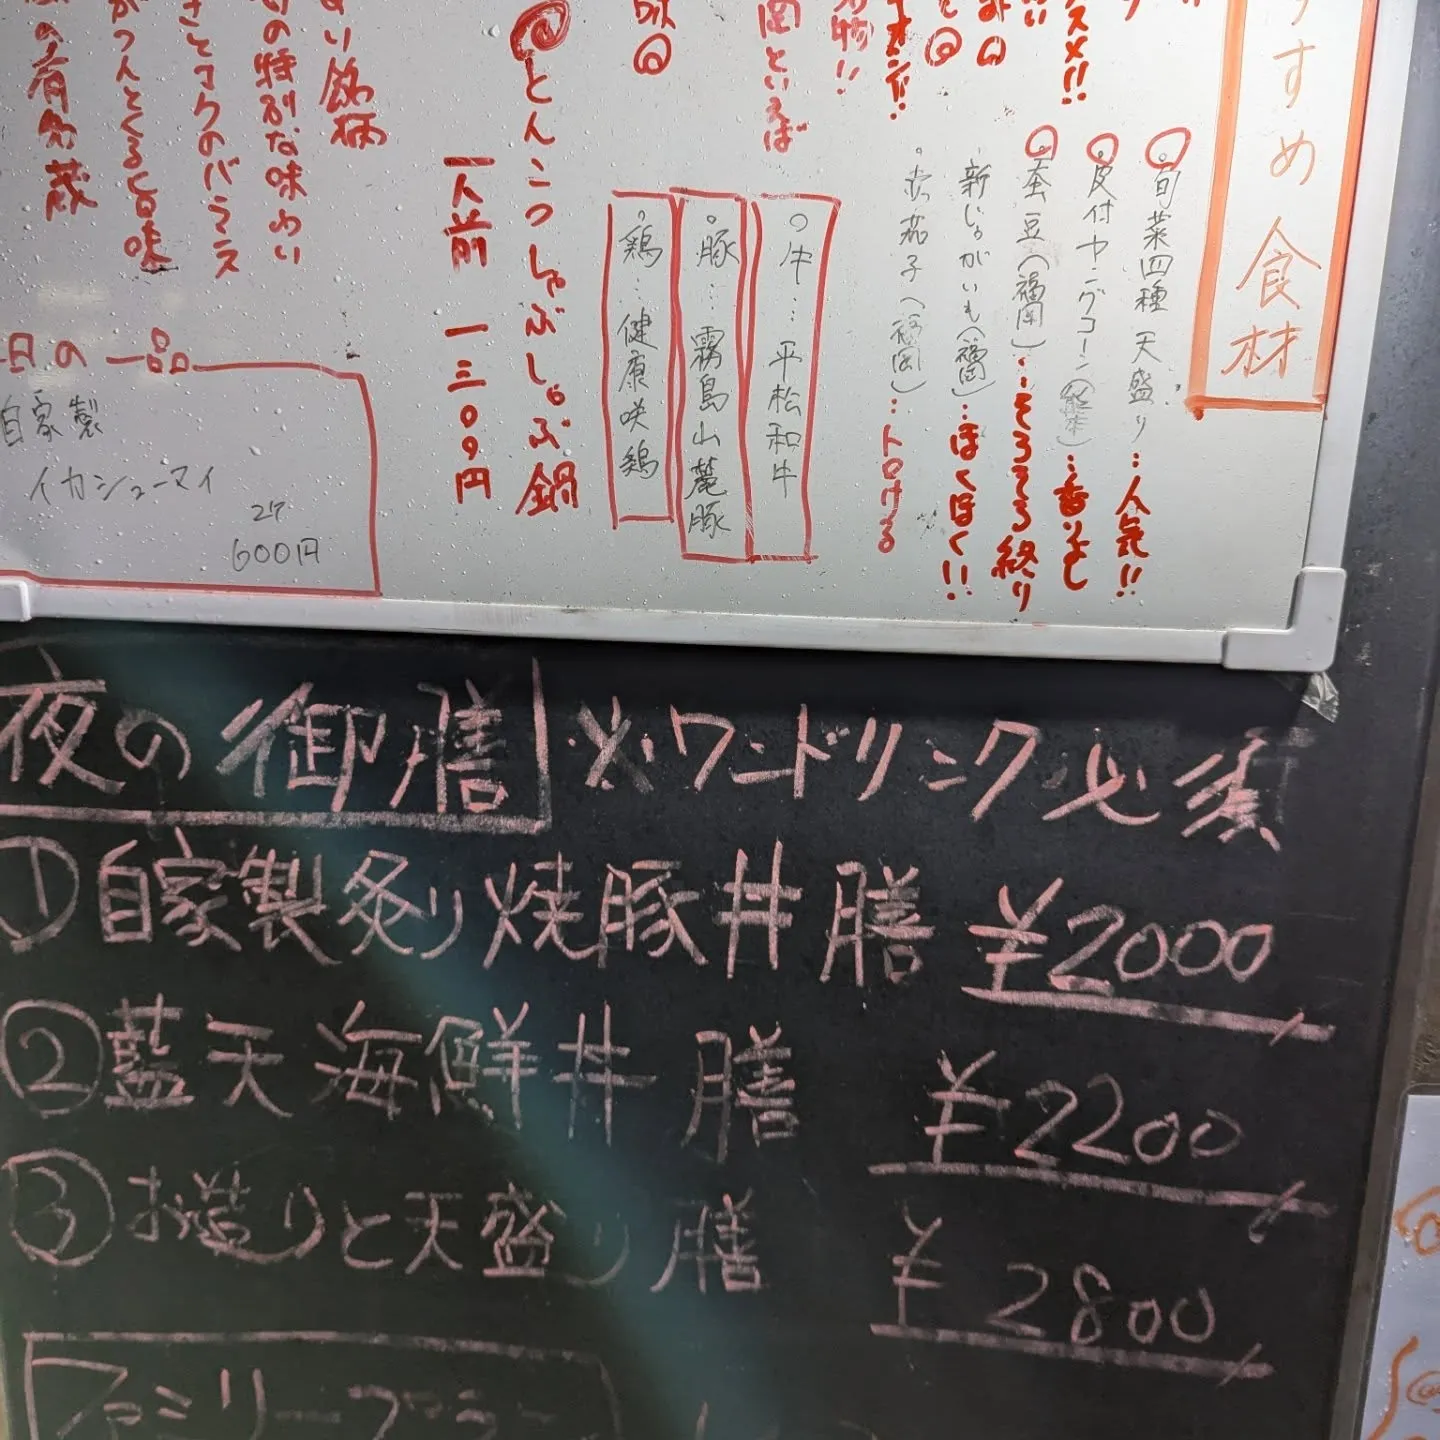 すすめ食材
旬菜四種 天盛り…人気!!
皮付ヤングコーン(熊本)…香りよし
蚕豆(福岡)…そろそろ終り
新じゃがいも(福岡)…ほくほく!!
(福岡)…トロける
スメ!!
といえば
牛…平松和牛
豚…霧島山麓豚
鶏…健康咲鶏
とんこつしゃぶしゃぶ鍋
一人前 一三〇九円
い銘柄
の特別な味わい
さとコクのバランス
がつんとくる旨味
の有名蔵
日の一品
自家製
イカシューマイ
2ケ
600円
夜の御膳 ※ワンドリンク必須
①自家製炙り焼豚丼膳 ¥2000
②藍天海鮮丼膳 ¥2200
③お造りと天盛り膳 ¥2800
ファミリープラ